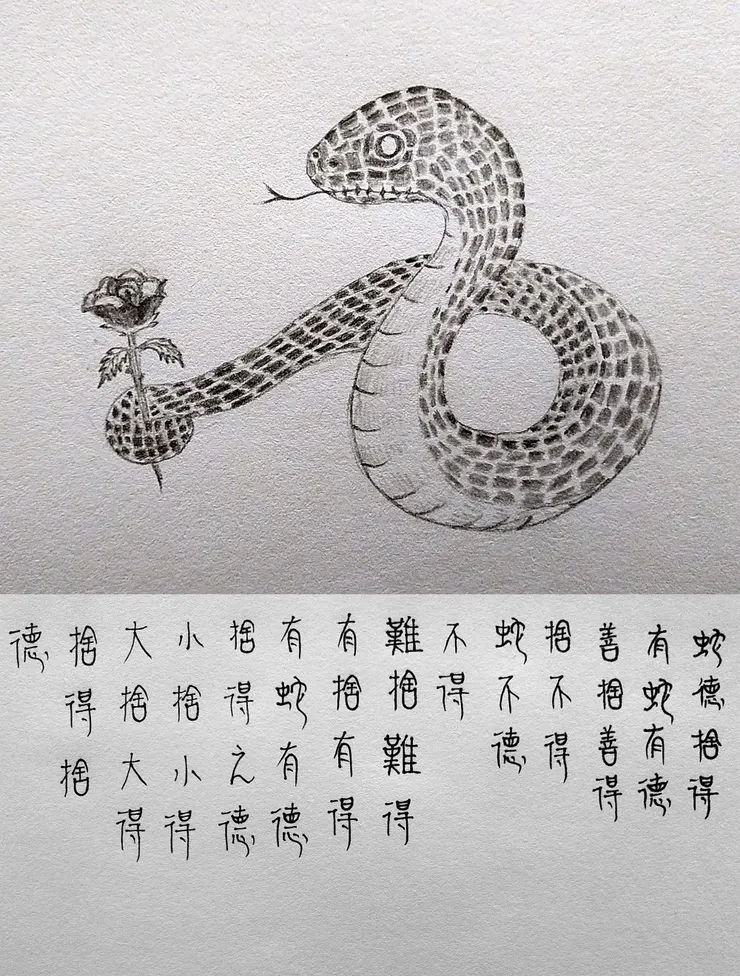 蛇德捨得
有蛇有德
善捨善得
捨不得
蛇不德
不得
難捨難得
有捨有得
有蛇有德
捨得之德
小捨小得
大捨大得
捨得捨
德